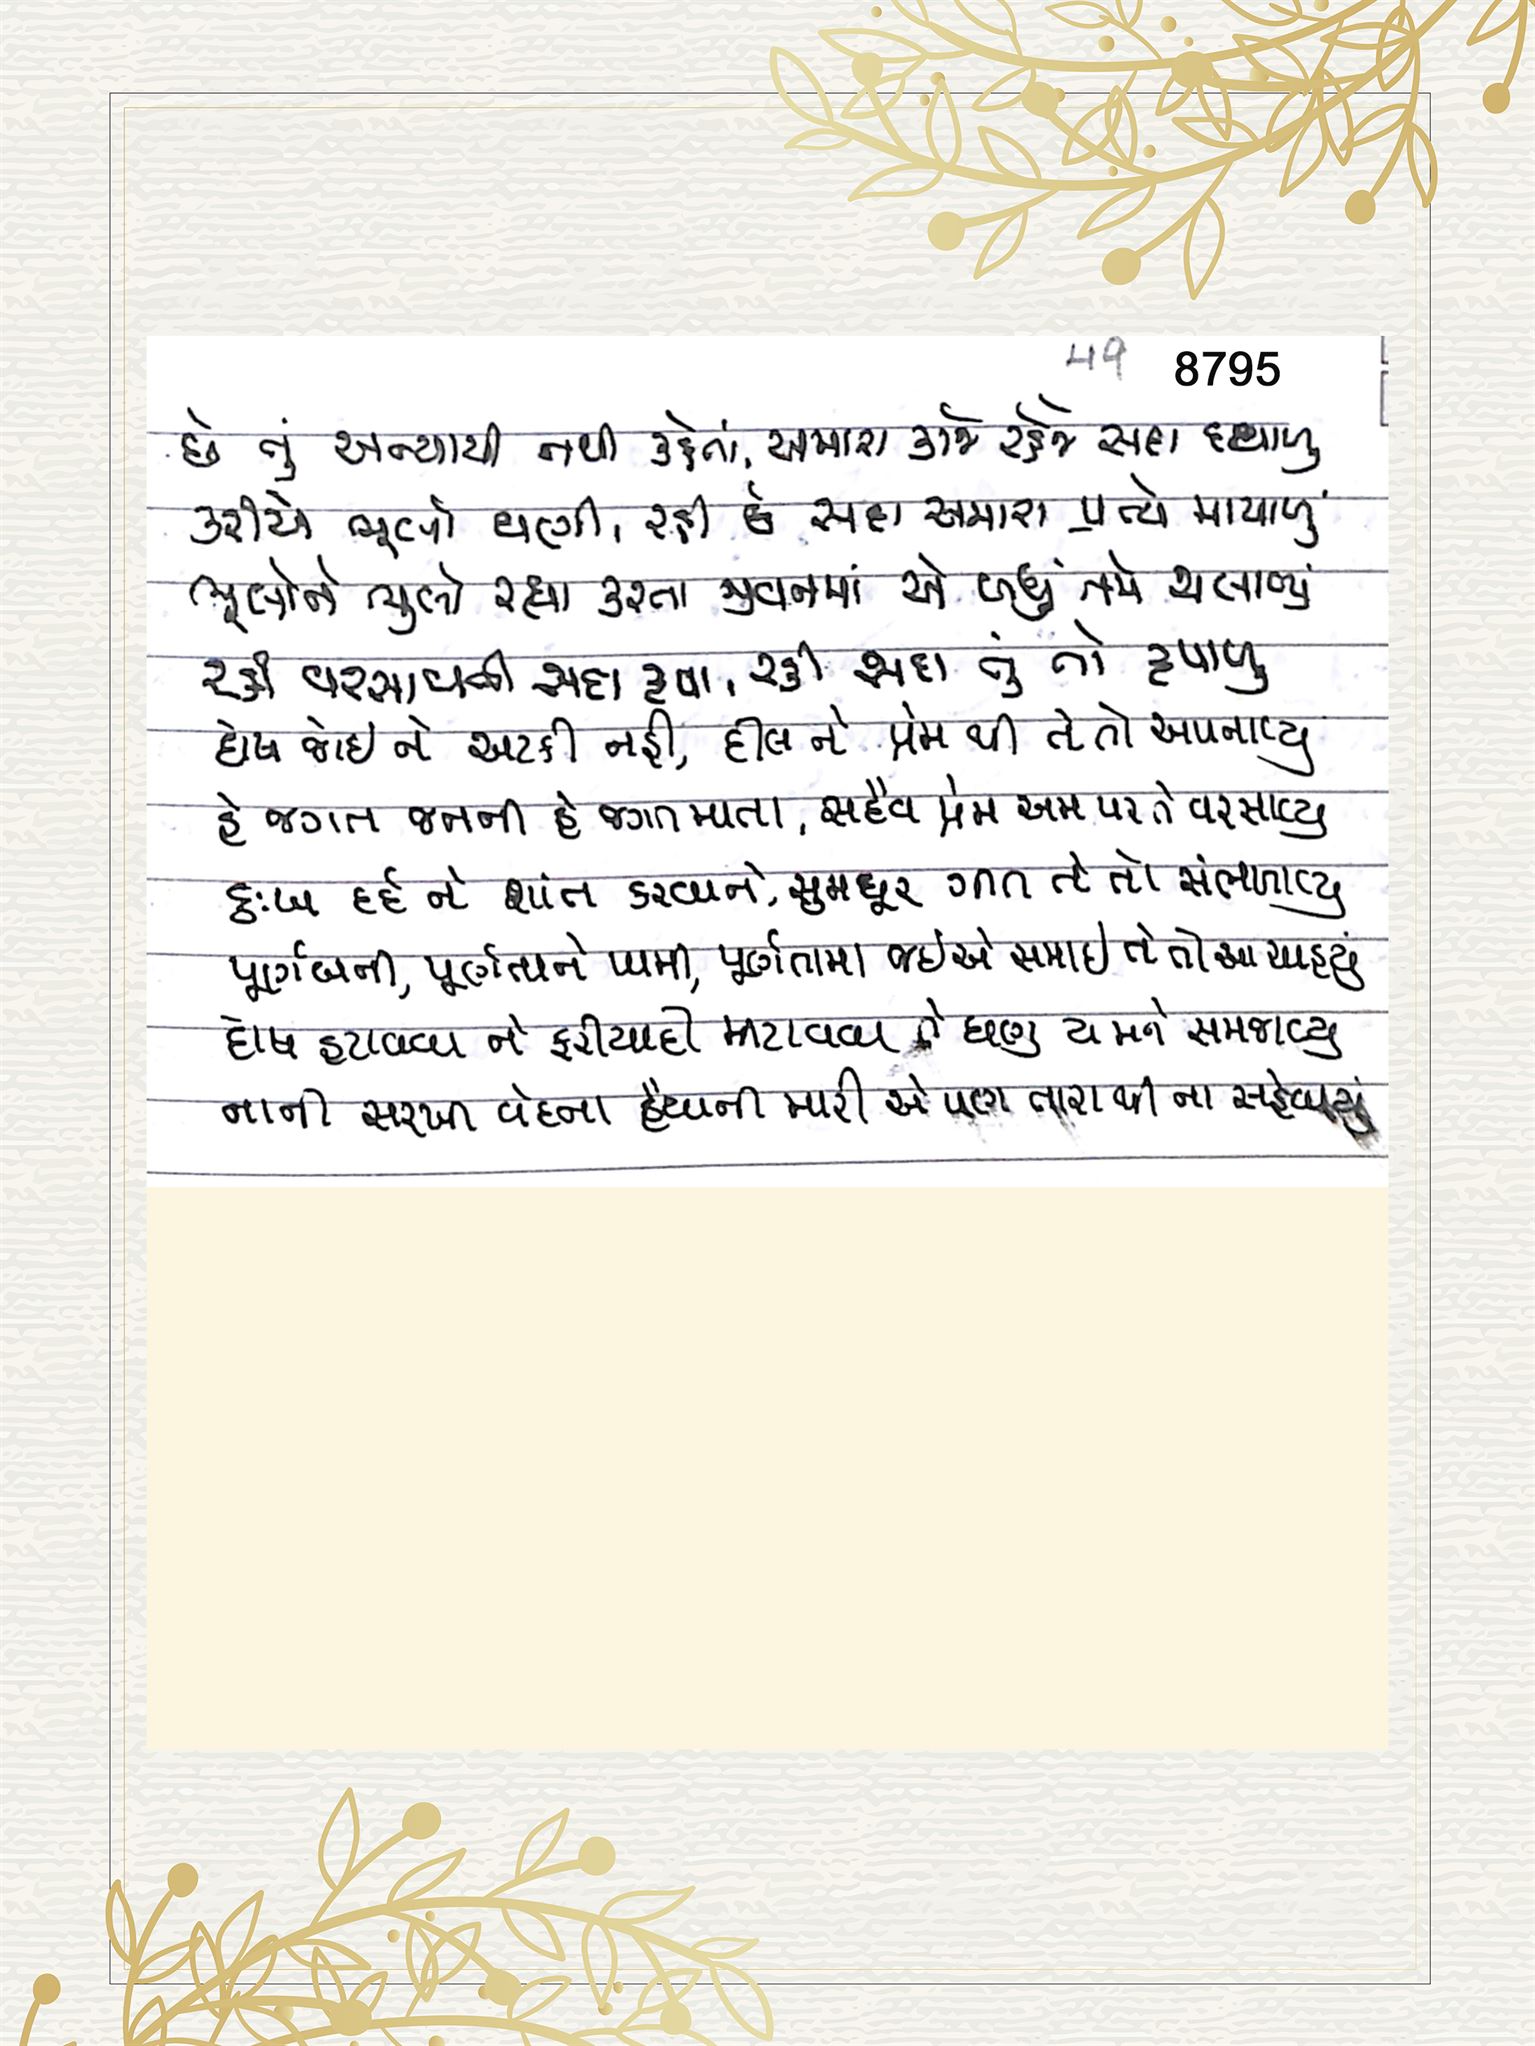 49 8795
છે તું અન્યાયી નથી કહેતાં, અમારા કાજે રહેજે સદા દયાળુ
કરીયે ભૂલો ઘણી, રહી છે સદા અમારા પ્રત્યે માયાળું
ભૂલોને ભુલો રહ્યા કરતા જીવનમાં એ બધું તમે ચલાવ્યું
રહી વરસાવતી સદા કૃપા, રહી સદા તું તો કૃપાળુ
દોષ જોઈ ને અટકી નહી, દીલ ને પ્રેમ થી તે તો અપનાવ્યુ
હે જગત જનની હે જગતમાતા, સદૈવ પ્રેમ અમ પર તે વરસાવ્યુ
દુઃખ દર્દ ને શાંત કરવાને, સુમધૂર ગીત તે તો સંભળાવ્યુ
પૂર્ણ બની, પૂર્ણતાને પામી, પૂર્ણતામા જઈએ સમાઈ તે તો આ ચાહ્યું
દોષ હટાવવા ને ફરીયાદો મીટાવવા તે ઘણુ ય મને સમજાવ્યુ
નાની સરખી વેદના હૈયાની મારી એ પણ તારા થી ના સહેવાયું